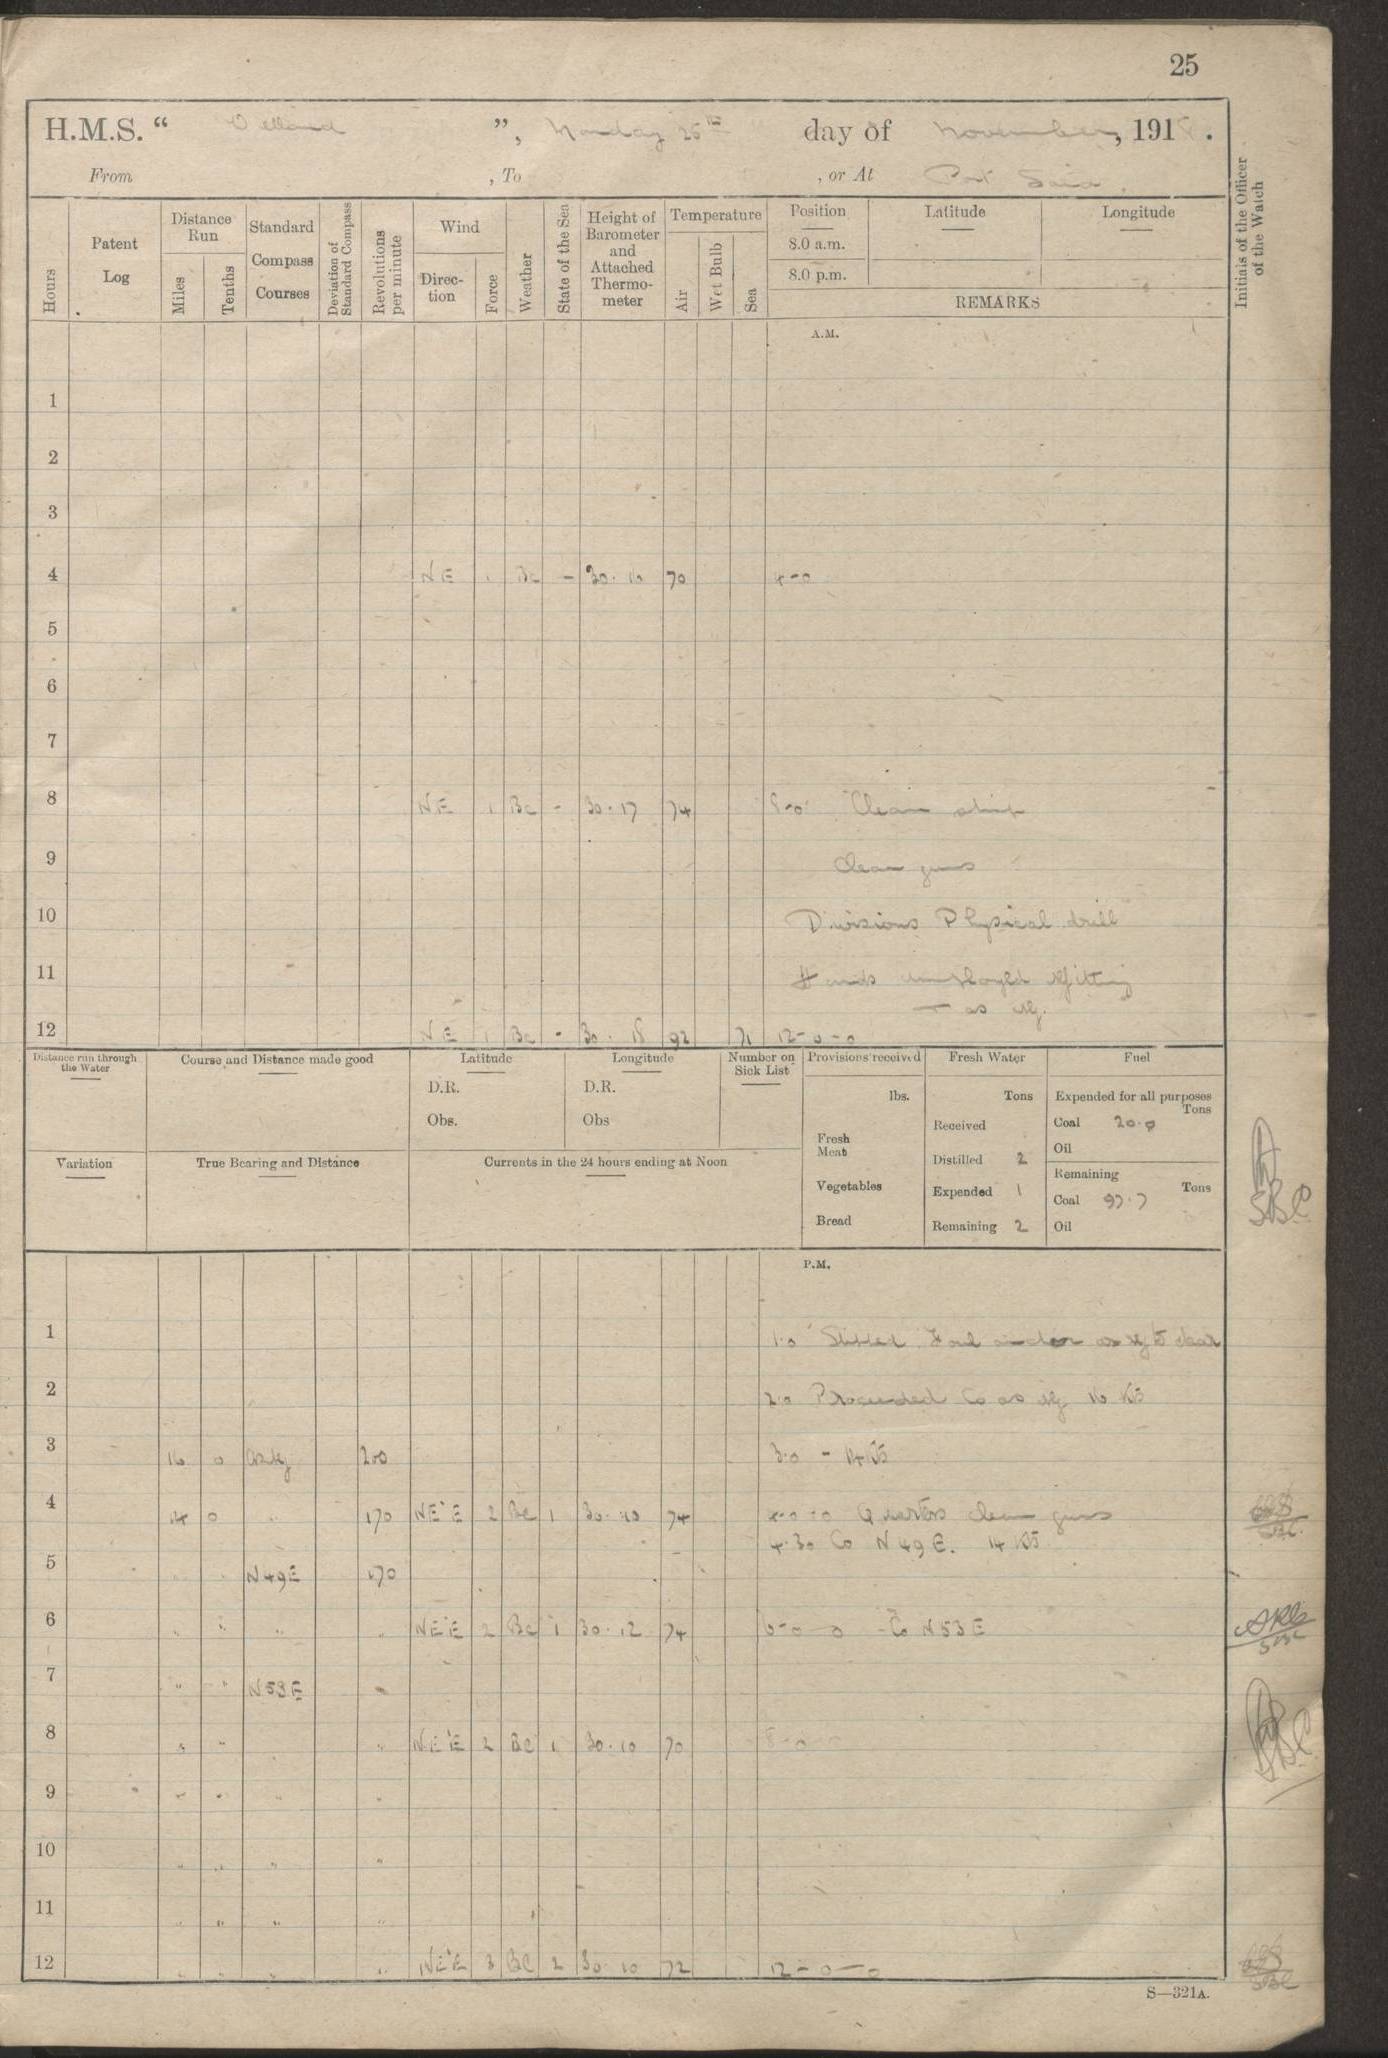 25
H.M.S. “ Welland ”, Monday 25th day of November, 1918.
From , To , or At Port Said.
Hours
Patent Log
Distance Run
Miles
Tenths
Standard Compass Courses
Deviation of Standard Compass
Revolutions per minute
Wind
Direction
Force
Weather
State of the Sea
Height of Barometer and Attached Thermometer
Temperature
Air
Wet Bulb
Sea
Position
8.0 a.m.
8.0 p.m.
Latitude
Longitude
REMARKS
Initials of the Officer of the Watch
A.M.
1
2
3
4 NE 1 Bc - 30.16 70 4-0
5
6
7
8 NE 1 Bc - 30.17 74 8-0 Clean ship
9 Clean guns
10 Divisions Physical drill
11 Hands employed refitting
as req.
12 NE 1 Bc - 30.18 92 71 12-0-0
Distance run through the Water
Course and Distance made good
Latitude
D.R.
Obs.
Longitude
D.R.
Obs
Number on Sick List
Provisions received
lbs.
Fresh Meat
Vegetables
Bread
Fresh Water
Tons
Received
Distilled 2
Expended 1
Remaining 2
Fuel
Expended for all purposes
Tons
Coal 20.0
Oil
Remaining
Tons
Coal 97.7
Oil
Variation
True Bearing and Distance
Currents in the 24 hours ending at Noon
SBC
P.M.
1 1.0 Slipped Foul anchor as req to clear
2 2.0 Proceeded Co as req 16 Kts
3 16 0 as req 200 3.0 - 14 Kts
4 14 0 " 170 NE'E 2 Bc 1 30.10 74 4-0-0 Quarters clean guns
4.30 Co N49E. 14 Kts
5 " " N49E 170
6 " " " " NE'E 2 Bc 1 30.12 74 6-0-0 - Co N53E
7 " " N53E "
8 " " " NE'E 2 Bc 1 30.10 70 8-0
9 " " " "
10 " " " "
11 " " " "
12 " " " " NE'E 3 Bc 2 30.10 72 12-0-0
S—321A.